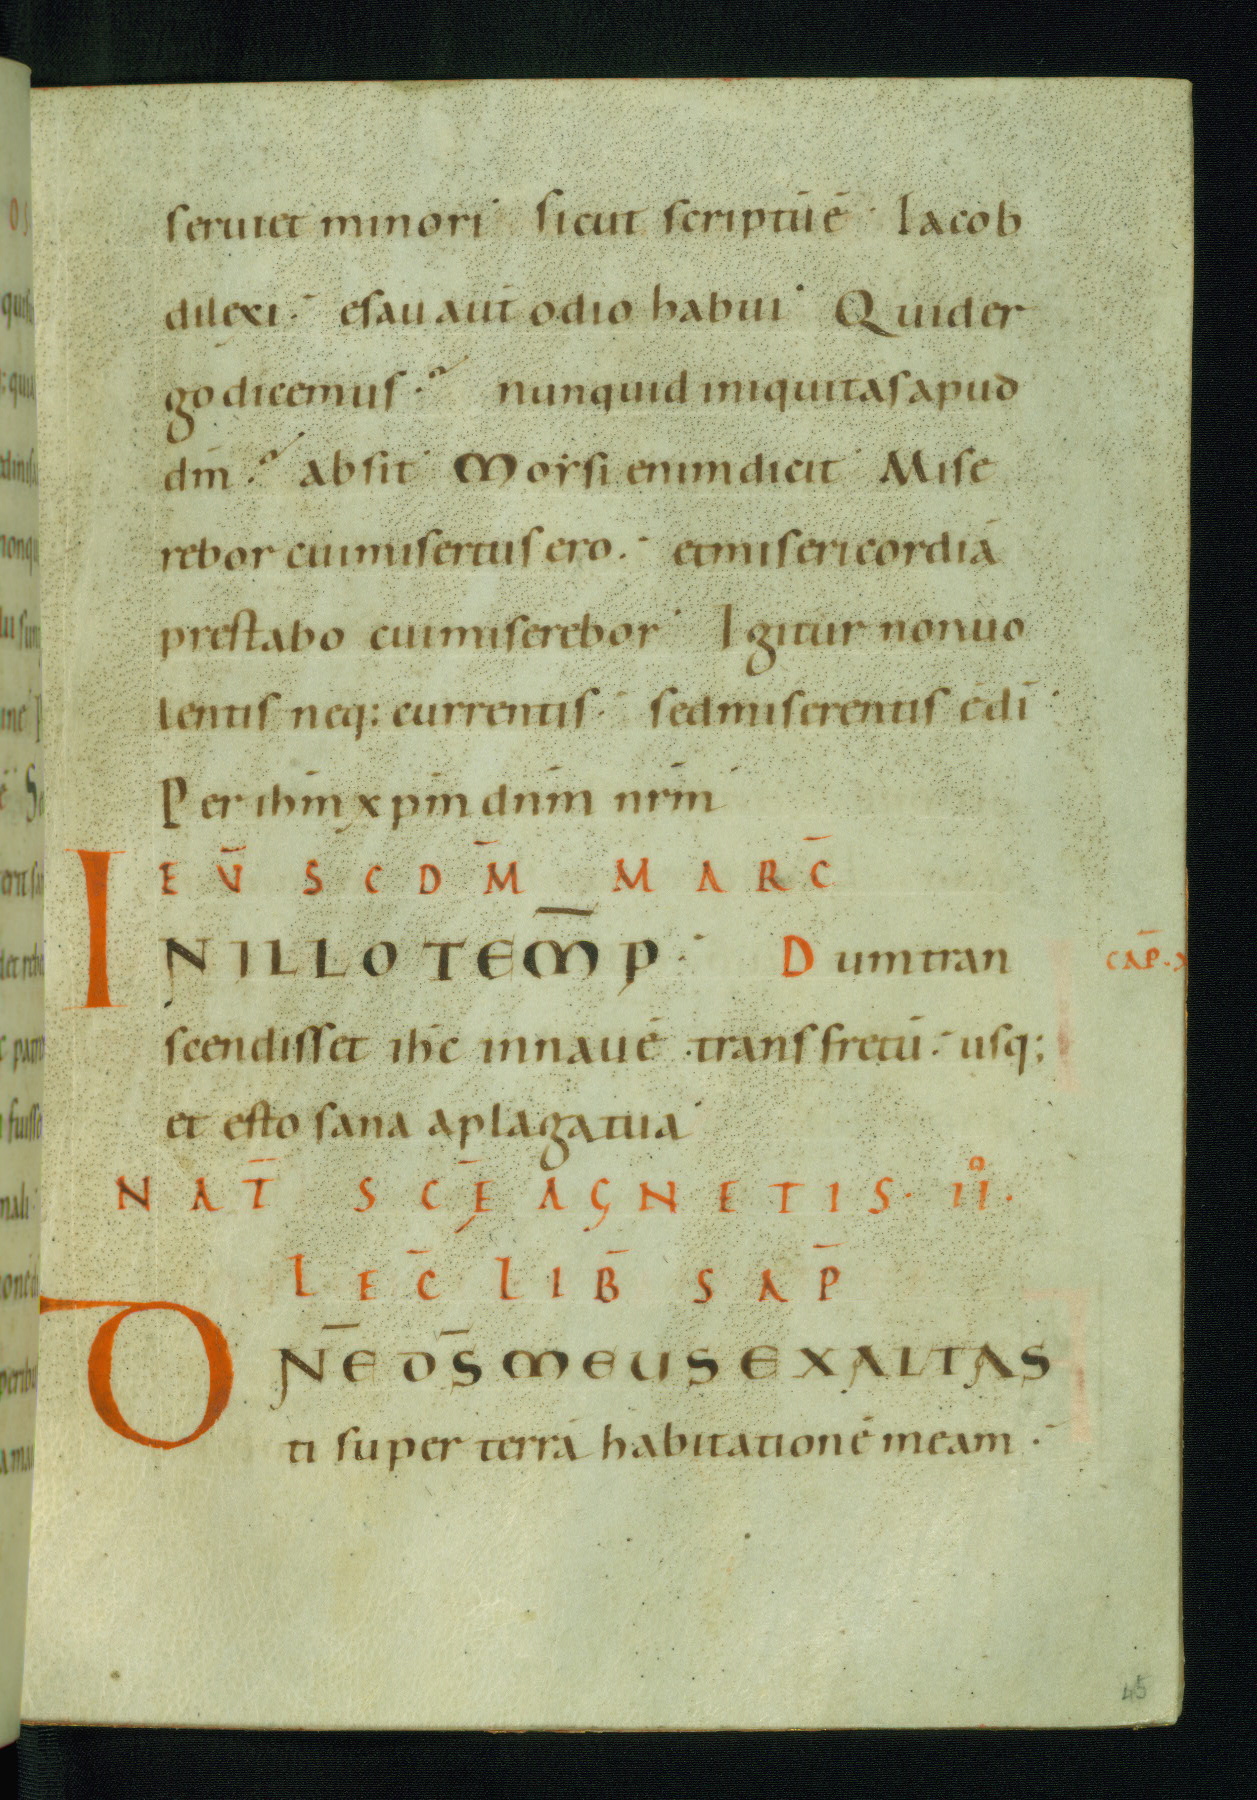 seruiet minori· sicut scriptū ē· Iacob
dilexi· esau aūt odio habui· Quid er
go dicemus· nunquid iniquitas apud
dm̄· absit· Moysi enim dicit· Mise
rebor cui misertus ero· et misericordiā
prestabo cui miserebor· Igitur non uo
lentis neq: currentis· sed miserentis ē dī·
Per ihm̄ xpm̄ dnm̄ nrm̄·
EV̄ SCDM̄ MARC̄
IN ILLO TEM̄P· Dum tran
CAP̄· X
scendisset ihc̄ in nauē· trans fretū· usq;
et esto sana a plaga tua·
NAT̄ SC̄E AGNETIS· II·
LEC̄ LIB̄ SAP̄
DN̄E DS̄ MEUS EXALTAS
ti super terrā habitationē meam·
45